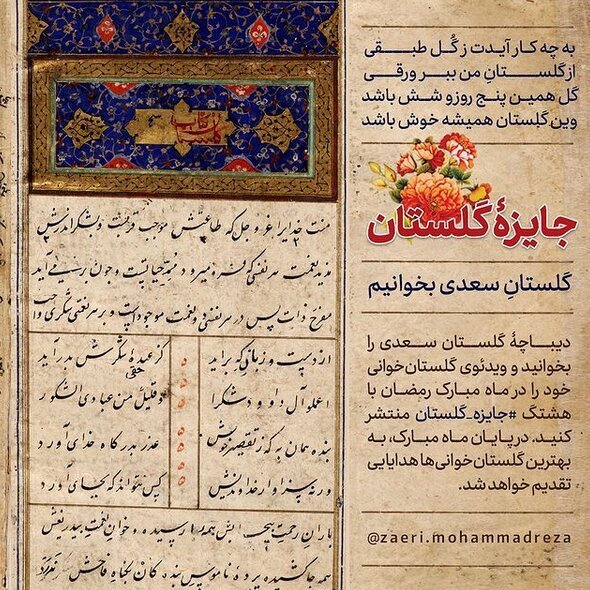 به چه کار آیدت ز گُل طبقی
از گلستانِ من ببر ورقی
گل همین پنج روز و شش باشد
وین گلستان همیشه خوش باشد
جایزهٔ گلستان
گلستانِ سعدی بخوانیم
دیباچهٔ گلستان سعدی را
بخوانید و ویدئوی گلستان‌خوانی
خود را در ماه مبارک رمضان با
هشتگ #جایزه_گلستان منتشر
کنید. در پایان ماه مبارک، به
بهترین گلستان‌خوانی‌ها هدایایی
تقدیم خواهد شد.
@zaeri.mohammadreza
کتاب گلستان
منت خدایرا عز و جل که طاعتش موجب قربتست و بشکر اندرش
مزید نعمت هر نفسی که فرو میرود ممد حیاتست و چون برمی آید
مفرح ذات پس در هر نفسی دو نعمت موجودست و بر هر نعمتی شکری واجب
از دست و زبان که برآید کز عهده شکرش بدر آید
اعملوا آل داود شکرا و قلیل من عبادی الشکور
بنده همان به که ز تقصیر خویش عذر بدرگاه خدای آورد
ورنه سزاوار خداوندیش کس نتواند که بجای آورد
باران رحمت بیحسابش همه را رسیده و خوان نعمت بیدریغش
همه جا کشیده پرده ناموس بندگان بگناه فاحش ندرد